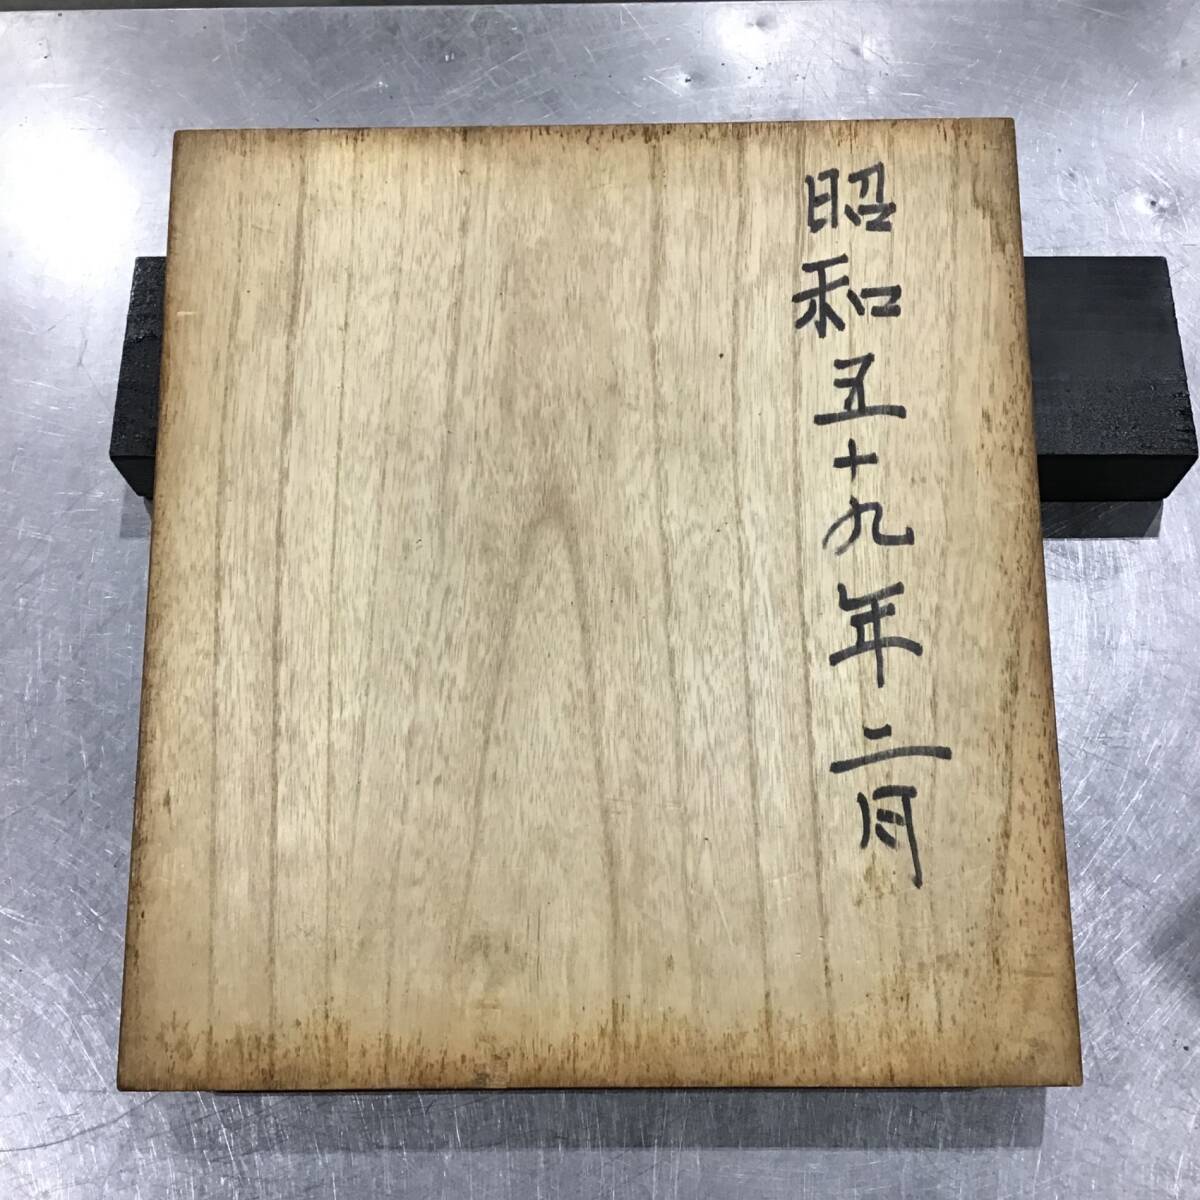 昭和五十九年二月